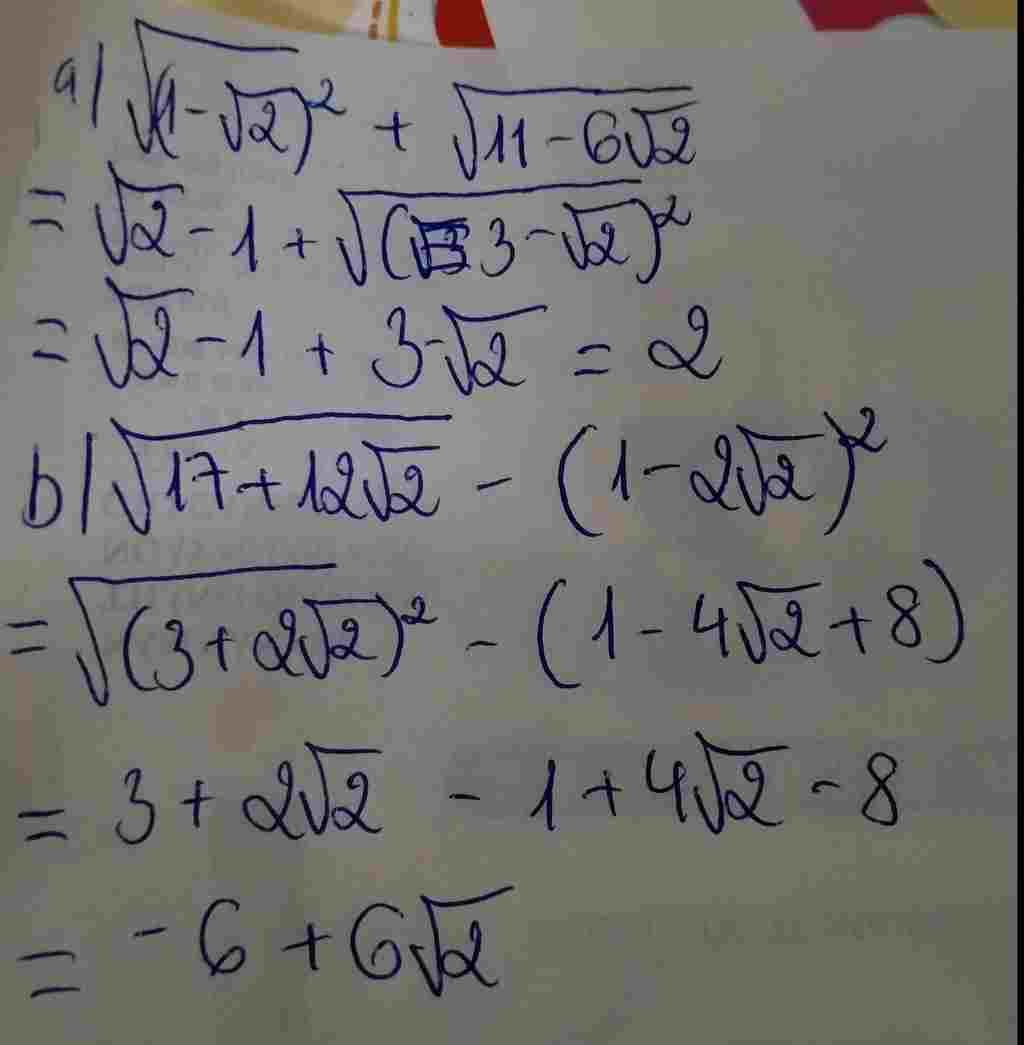 a) √(1-√2)² + √11-6√2
= √2 - 1 + √(3-√2)²
= √2 - 1 + 3-√2 = 2
b) √17+12√2 - (1-2√2)²
= √(3+2√2)² - (1-4√2+8)
= 3+2√2 - 1+4√2-8
= -6+6√2